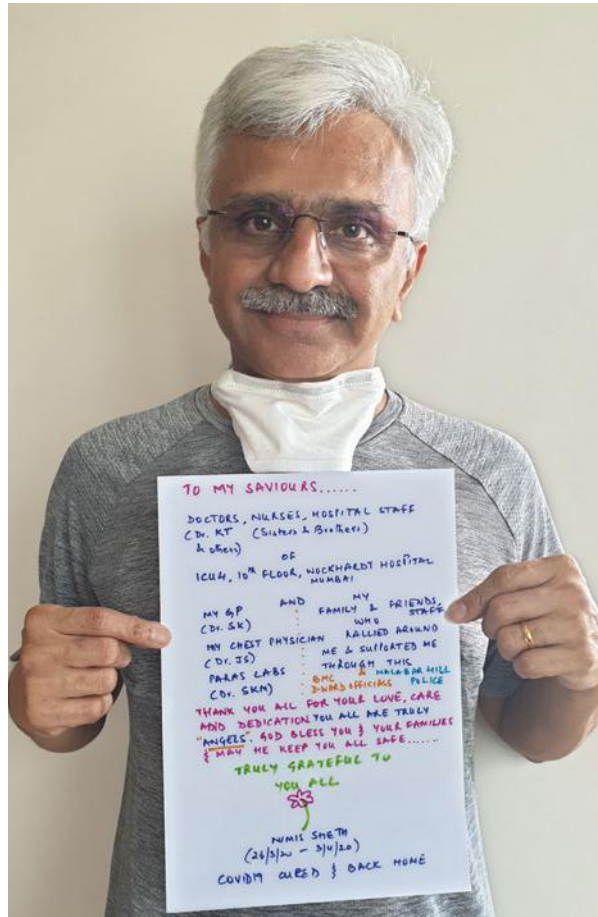 TO MY SAVIOURS......
DOCTORS, NURSES, HOSPITAL STAFF
(Dr. KT (Sisters & Brothers)
& others)
OF
ICU4, 10TH FLOOR, WOCKHARDT HOSPITAL
MUMBAI
AND
MY GP
(Dr. SK)
MY CHEST PHYSICIAN
(Dr. JS)
PARAS LABS
(Dr. SKN)
MY
FAMILY & FRIENDS,
STAFF
WHO
RALLIED AROUND
ME & SUPPORTED ME
THROUGH THIS
BMC & MALABAR HILL
D-WARD OFFICIALS POLICE
THANK YOU ALL FOR YOUR LOVE, CARE
AND DEDICATION YOU ALL ARE TRULY
"ANGELS". GOD BLESS YOU & YOUR FAMILIES
& MAY HE KEEP YOU ALL SAFE......
TRULY GRATEFUL TO
YOU ALL
NIMIS SHETH
(26/3/20 - 3/4/20)
COVID19 CURED & BACK HOME